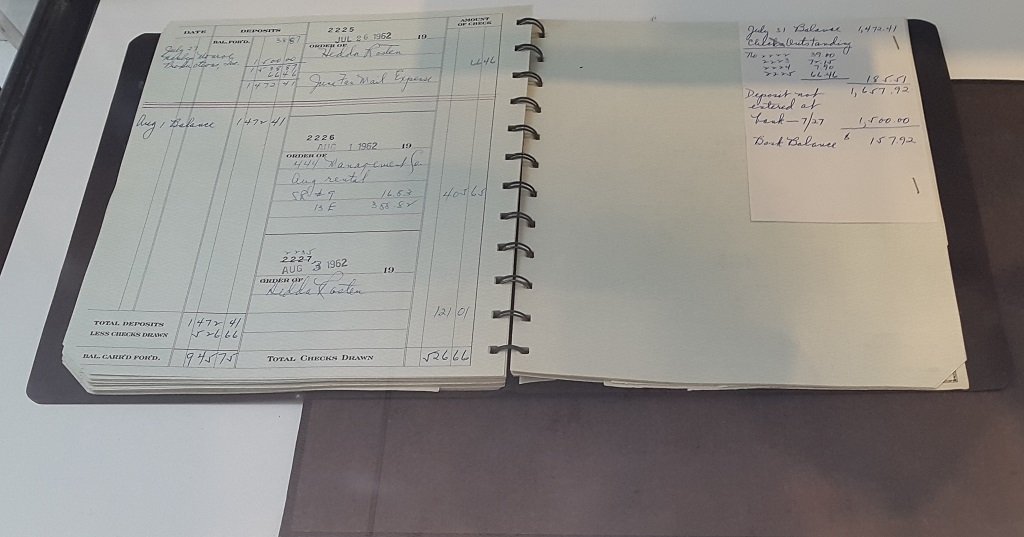 DATE DEPOSITS AMOUNT OF CHECK
2225
JUL 26 1962 19
BAL. FOR'D.
ORDER OF Hedda Rosten
July 27
1,500.00
66.46
1472 41
June Fan Mail Expense
Aug 1 Balance 1472 41
2226
AUG 1 1962 19
ORDER OF
444 Management Co
Aug rental
SR #9 16.83
13 E 388.82
405 65
2227
AUG 3 1962 19
ORDER OF
Hedda Rosten
121 01
TOTAL DEPOSITS 1472 41
LESS CHECKS DRAWN 526 66
BAL. CARR'D FOR'D. 945 75 TOTAL CHECKS DRAWN 526 66
July 31 Balance 1,472.41
Checks Outstanding
No 2222 39.00
2223
2224 7.90
2225 66.46
185.51
1,657.92
Deposit not
entered at
bank — 7/27 1,500.00
Bank Balance $ 157.92